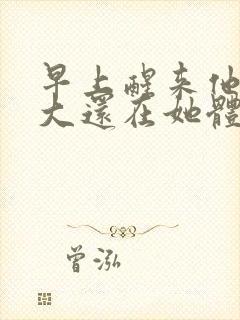 早上醒来他
大還在她體
曾泓